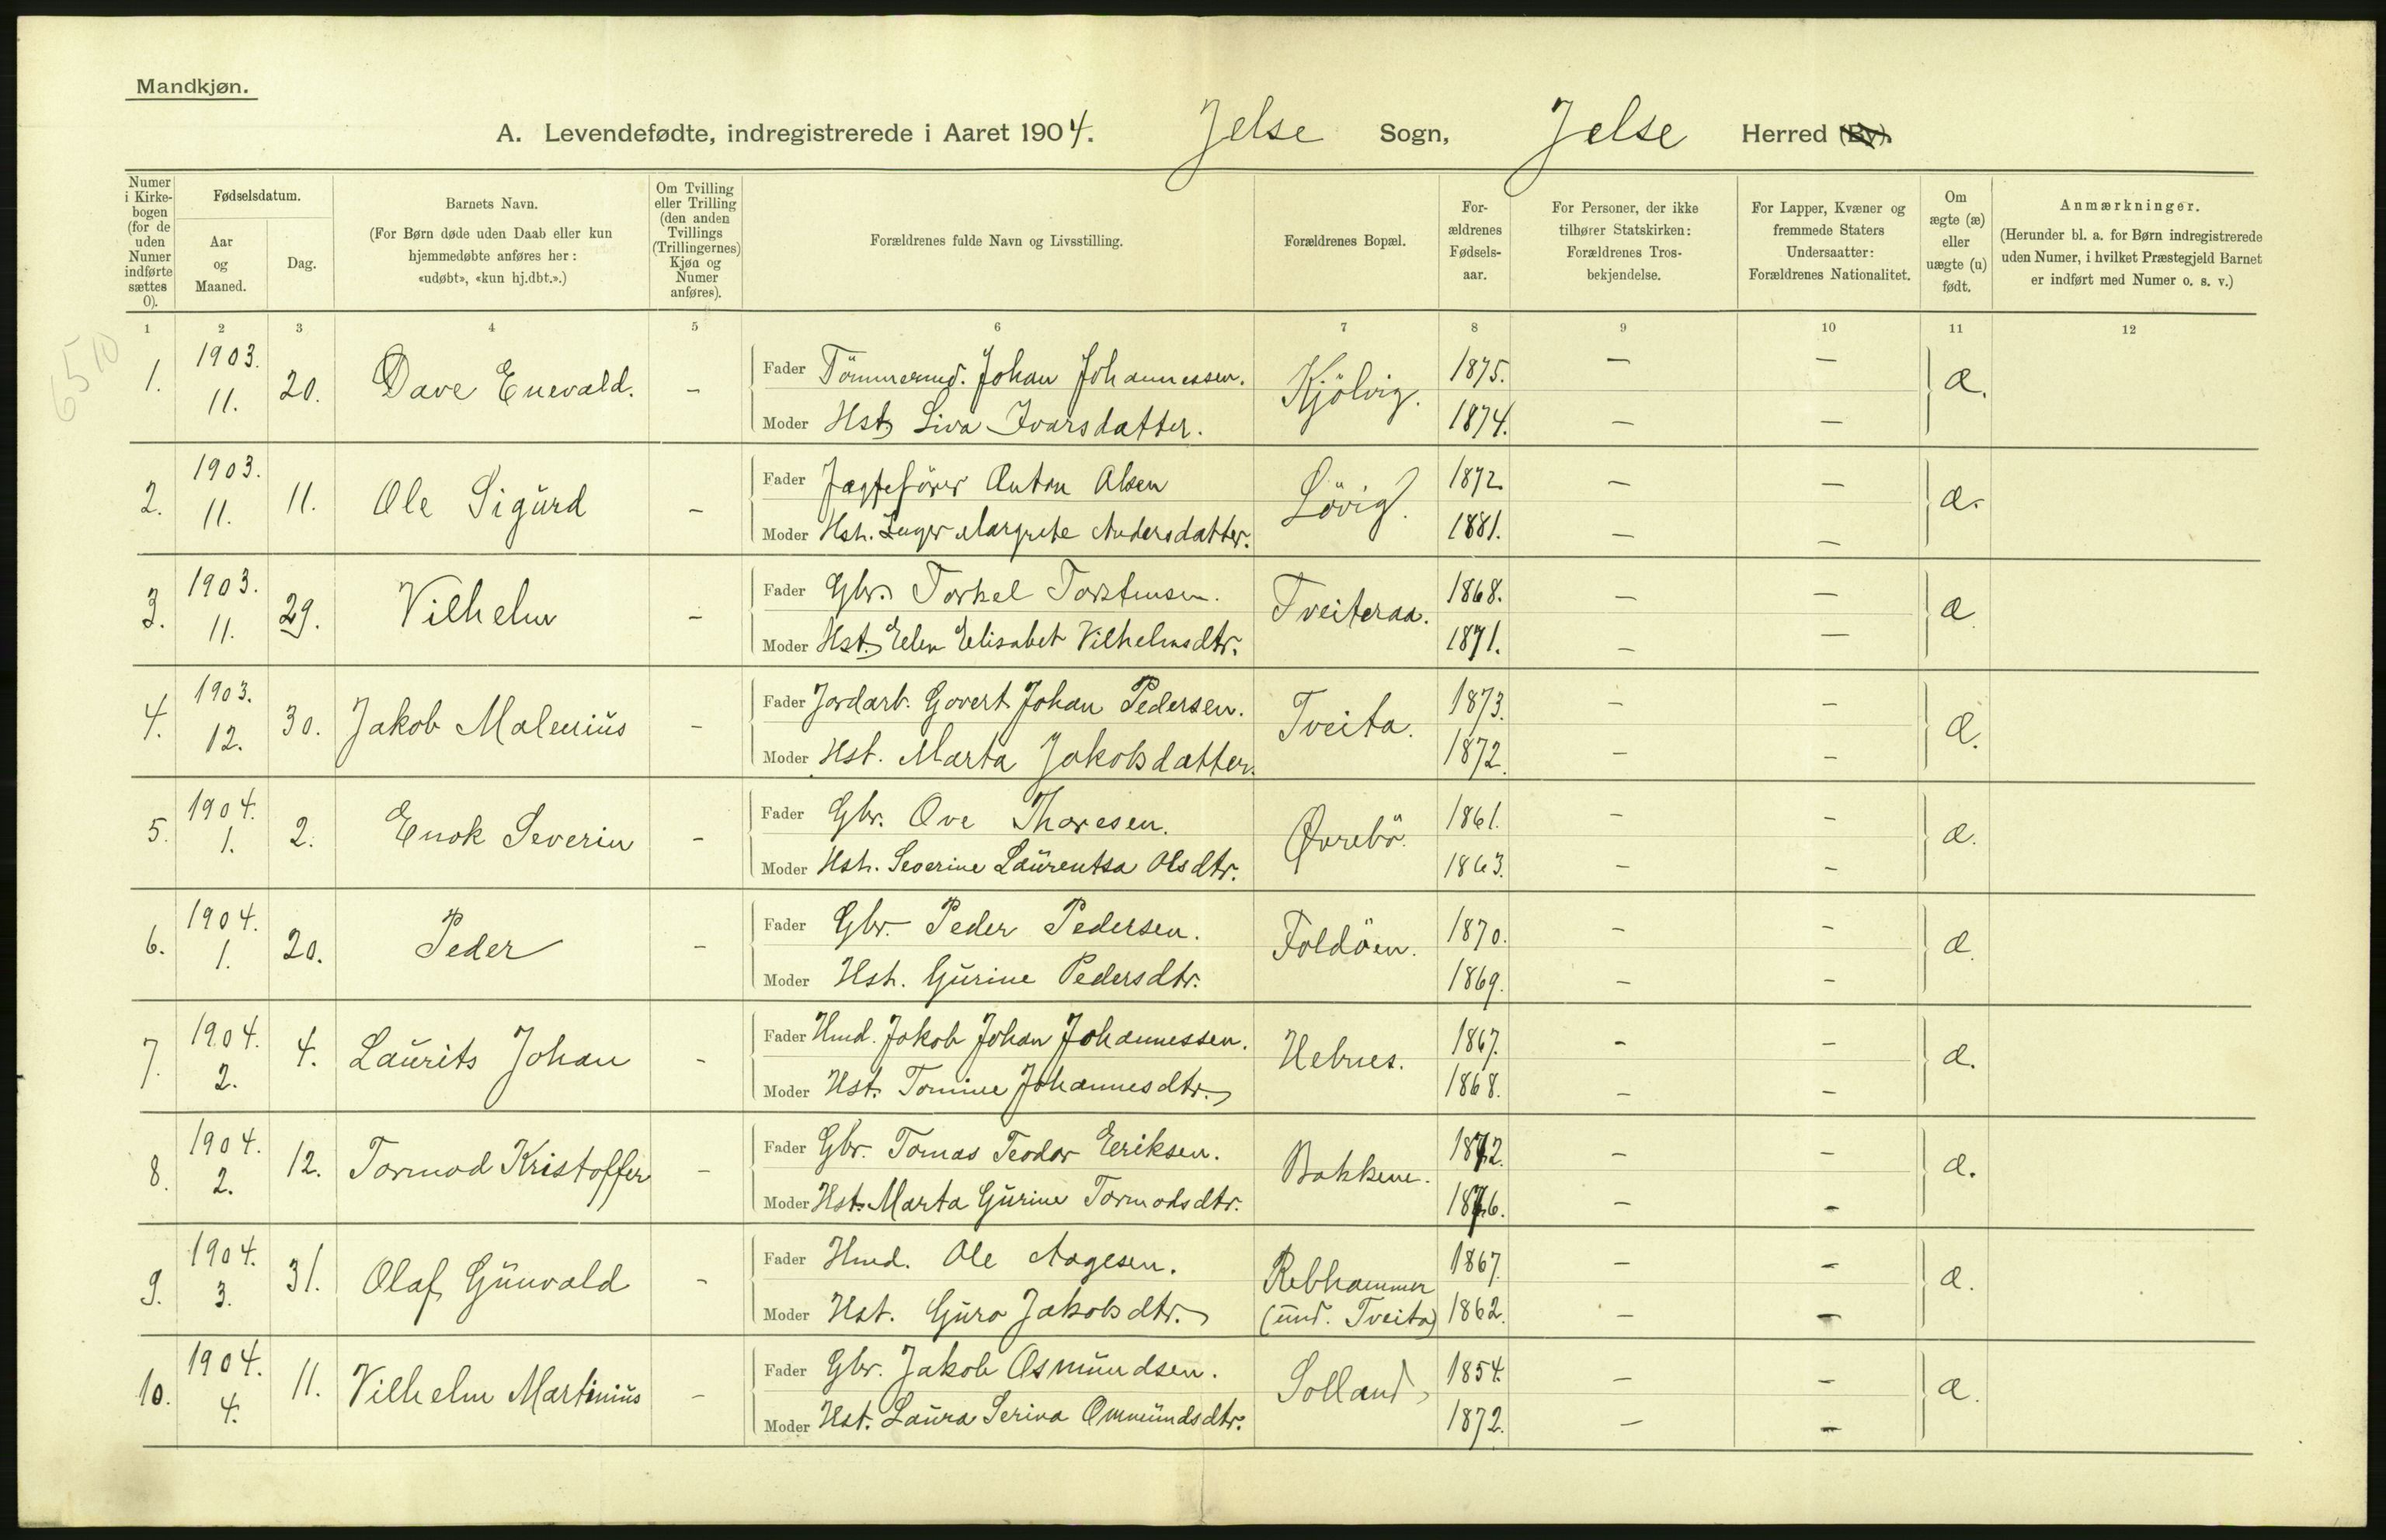 Mandkjøn.
A. Levendefødte, indregistrerede i Aaret 1904. Jelse Sogn, Jelse Herred (By).
Numer i Kirkebogen (for de uden Numer indførte sættes 0).
Fødselsdatum.
Aar og Maaned.
Dag.
Barnets Navn.
(For Børn døde uden Daab eller kun hjemmedøbte anføres her: «udøbt», «kun hj.dbt.».)
Om Tvilling eller Trilling (den anden Tvillings (Trillingernes) Kjøn og Numer anføres).
Forældrenes fulde Navn og Livsstilling.
Forældrenes Bopæl.
Forældrenes Fødselsaar.
For Personer, der ikke tilhører Statskirken: Forældrenes Trosbekjendelse.
For Lapper, Kvæner og fremmede Staters Undersaatter: Forældrenes Nationalitet.
Om ægte (æ) eller uægte (u) født.
Anmærkninger.
(Herunder bl. a. for Børn indregistrerede uden Numer, i hvilket Præstegjeld Barnet er indført med Numer o. s. v.)
1 2 3 4 5 6 7 8 9 10 11 12
1. 1903. 11. 20. Dave Enevald. - Fader Tömmermd. Johan Johannessen. Kjölvig. 1875. — — æ.
Moder Hst. Siva Ivarsdatter. 1874. — —
2. 1903. 11. 11. Ole Sigurd - Fader Jagteförer Anton Olsen Lövig. 1872. — — æ.
Moder Hst. Inger Margrete Andersdatter. 1881. — —
3. 1903. 11. 29. Vilhelm - Fader Gbr. Torkel Torstensen. Tveiteraa. 1868. — — æ
Moder Hst. Elen Elisabet Vilhelmsdtr. 1871. — —
4. 1903. 12. 30. Jakob Malenius - Fader Jordarb. Govert Johan Pedersen. Tveita. 1873. — — æ.
Moder Hst. Marta Jakobsdatter. 1872. — —
5. 1904. 1. 2. Enok Severin - Fader Gbr. Ove Thoresen. Øvrebö. 1861. — — æ.
Moder Hst. Severine Laurentsa Olsdtr. 1863. — —
6. 1904. 1. 20. Peder - Fader Gbr. Peder Pedersen. Foldöen. 1870. — — æ.
Moder Hst. Gurine Pedersdtr. 1869. — —
7. 1904. 2. 4. Laurits Johan - Fader Hmd. Jakob Johan Johannessen. Hebnes. 1867. — — æ.
Moder Hst. Tomine Johannesdtr. 1868. — —
8. 1904. 2. 12. Tormod Kristoffer - Fader Gbr. Tomas Teodor Eeriksen. Bakkene. 1872. — — æ.
Moder Hst. Marta Gurine Tormodsdtr. 1876. — —
9. 1904. 3. 31. Olaf Gunvald - Fader Hmd. Ole Aagesen. Rebhammer 1867. — — æ.
Moder Hst. Guro Jakobsdtr. (und. Tveita) 1862. — —
10. 1904. 4. 11. Vilhelm Martinius - Fader Gbr. Jakob Osmundsen. Solland 1854. — — æ.
Moder Hst. Laura Serina Ommundsdtr. 1872. — —